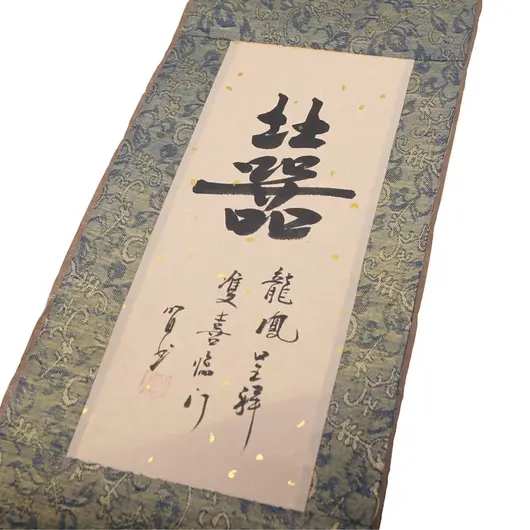 囍
龍鳳呈祥
雙喜臨门